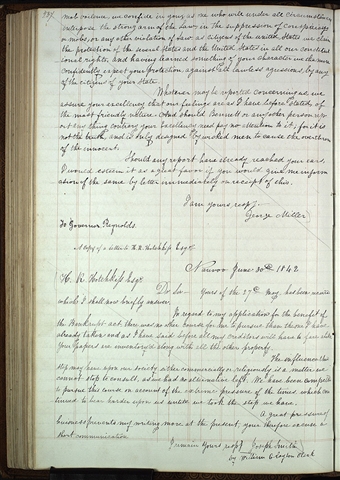 mob violence, we confide in you, as one who will under all circumstances
interpose the strong arm of the law, in the suppression of conspiracys
or mobs, or any other violation of law. as citizens of the united States we claim
the protection of the several states and the United States in all our constitu
ional rights, and having learned something of your character we the more
confidently expect your protection against all lawless agressions, by any
of the citizens of your State.
Whatever may be reported concerning us we
assure your excellency that our feelings are as I have before stated, of
the most friendly nature. And should Bennett or any other person rep-
ort any thing contrary your Excellency need pay no attention to it; for it is
not the truth, and is only designed by wicked men to cause the overthrow
of the innocent.
Should any report have already reached your ears,
I would esteem it as a great favor if you would give me inform
ation of the same by letter immediately on receipt of this.
I am yours, respy
George Miller
To Governor Reynolds.
A Copy of a letter to H. R. Hotchkiss Esqr.
Nauvoo June 30th 1842
H. R. Hotchkiss Esqr.
Dr Sir Yours of the 27th May, has been received
which I shall now briefly answer.
In regard to my application for the benefit of
the Bankrupt act there was no other course for me to pursue than those I have
already taken and as I have said before all my creditors will have to fare alike
Your papers are inventoried along with all the other property.
The influence this
step may have upon our society either commercially or religiously is a matter we
cannot stop to consult, as we had no alternative left. We have been compelled
to pursue this course on account of the extreme pressure of the times, which con
tinued to bear harder upon us until we took the step we have.
A great pressure of
business prevents my writing more at the present; you therefore excuse a
short communication
I remain yours respy Joseph Smith
by William Clayton Clerk